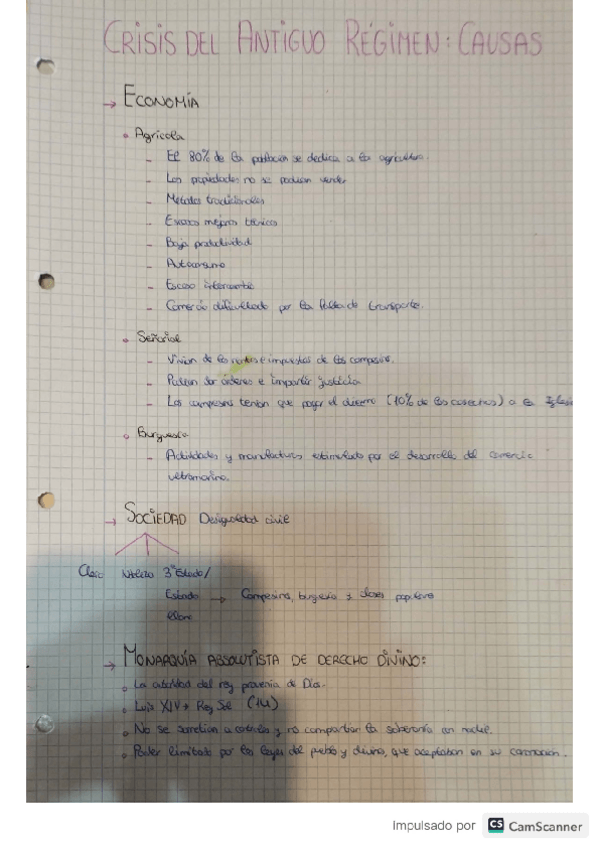 CRISIS DEL ANTIGUO RÉGIMEN: CAUSAS
→ ECONOMÍA
• Agrícola
- El 80% de la población se dedica a la agricultura.
- Las propiedades no se podían vender
- Métodos tradicionales
- Escasas mejoras técnicas
- Baja productividad
- Autoconsumo
- Escaso intercambio
- Comercio dificultado por la falta de transporte.
• Señorial
- Vivían de las rentas e impuestos de los campesinos.
- Podían dar órdenes e impartir justicia
- Los campesinos tenían que pagar el diezmo (10% de las cosechas) a la Iglesia
• Burguesía
- Actividades y manufacturas estimuladas por el desarrollo del comercio
ultramarino.
→ SOCIEDAD Desigualdad civil
Clero Nobleza 3er Estado/
Estado → Campesinos, burguesía y clases populares
llano
→ MONARQUÍA ABSOLUTISTA DE DERECHO DIVINO:
• La autoridad del rey provenía de Dios.
• Luis XIV → Rey Sol (14)
• No se sometían a control y no compartían la soberanía con nadie.
• Poder limitado por las leyes del pueblo y divina, que aceptaban en su coronación.
Impulsado por CS CamScanner